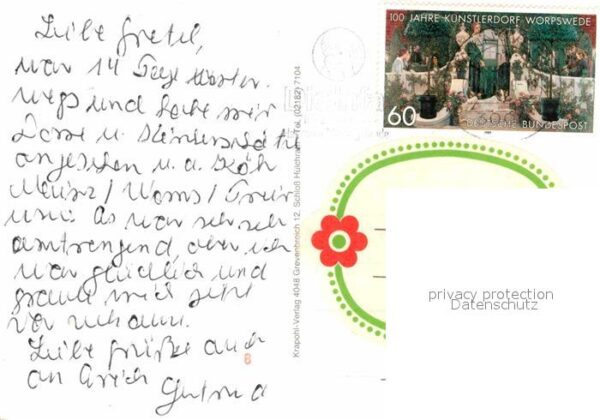 Liebe Gretel,
war 14 Tage unter-
wegs und habe mir
Dome u.
angesehen u. a. Köln
Mainz / Worms / Trier
und es war sehr sehr
anstrengend, aber ich
war glücklich und
graule mich jetzt
vor
Liebe Grüße auch
an
8
Krapohl-Verlag 4048 Grevenbroich 12, Schloß Hülchrath, Tel. (02182) 7104
100 JAHRE KÜNSTLERDORF WORPSWEDE
60
DEUTSCHE BUNDESPOST
privacy protection
Datenschutz